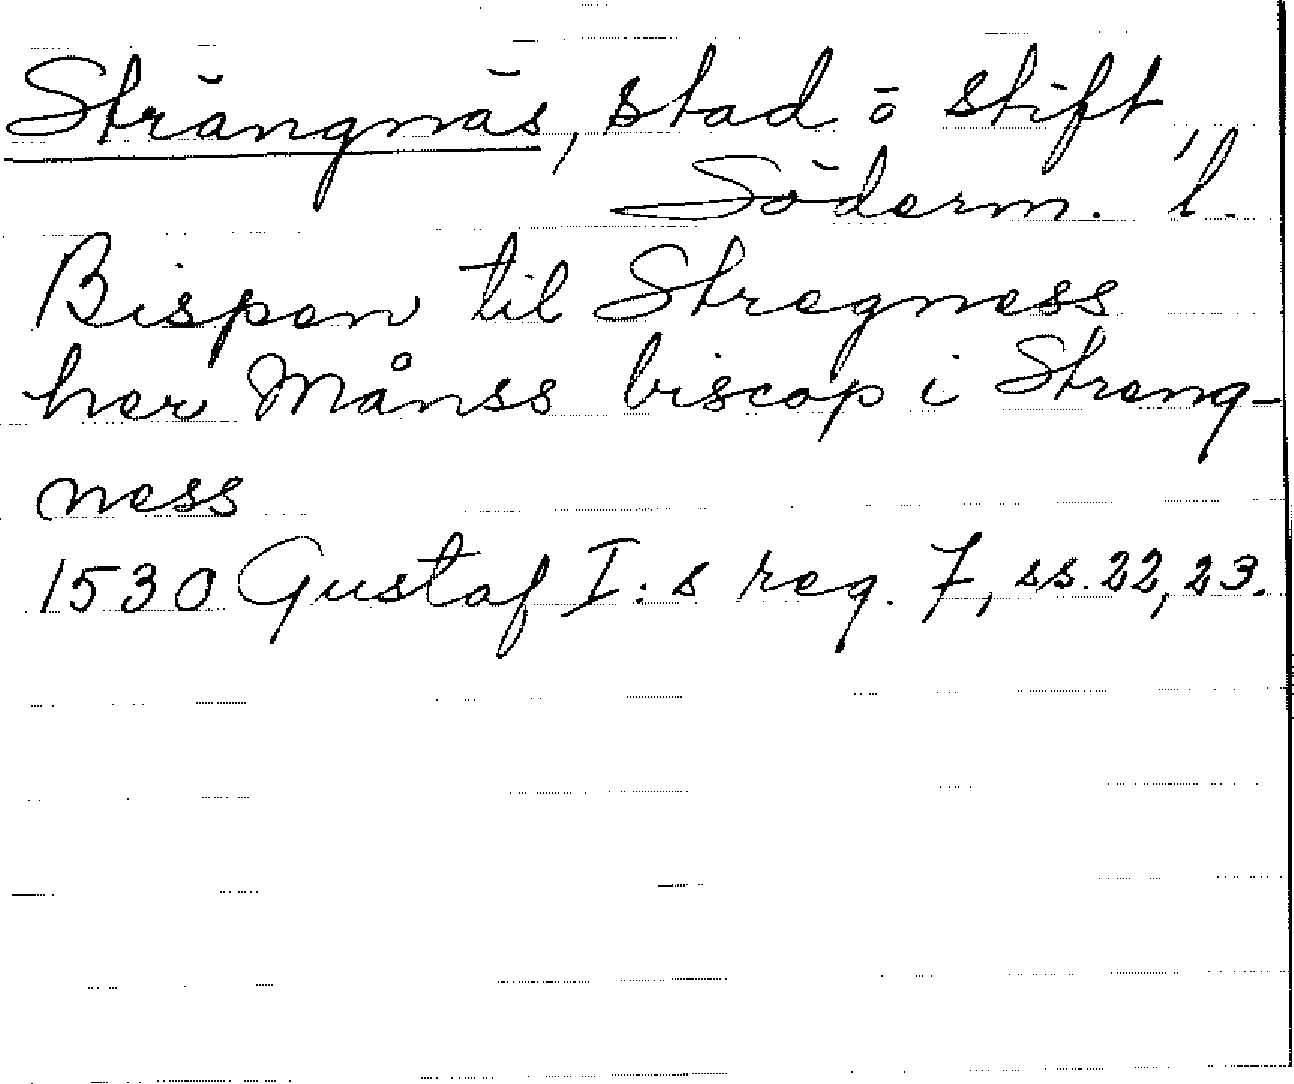 Strängnäs, stad o stift,
Söderm. l.
Bispen til Stregness
her Månss biscop i Streng-
ness
1530 Gustaf I:s reg. 7, ss. 22, 23.